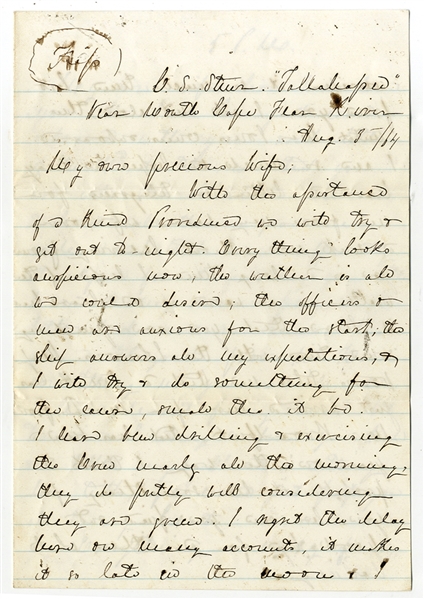 Kiss
C. S. Stmr. "Tallahassee"
Near Mouth Cape Fear River
Aug. 3 /64
My own precious Wife;
With the assistance
of a Kind Providence we will try &
get out to-night. Everything looks
auspicious now, the weather is all
we could desire, the officers &
men are anxious for the start, the
ship answers all my expectations, &
I will try & do something for
the cause, small tho. it be.
I have been drilling & exercising
the Crew nearly all the morning,
they do pretty well considering
they are green. I regret the delay
here on many accounts, it makes
it so late in the moon & I